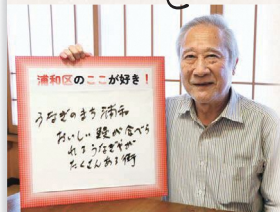 浦和区のここが好き！
うなぎのまち浦和
おいしい鰻が食べら
れるうなぎやが
たくさんある街